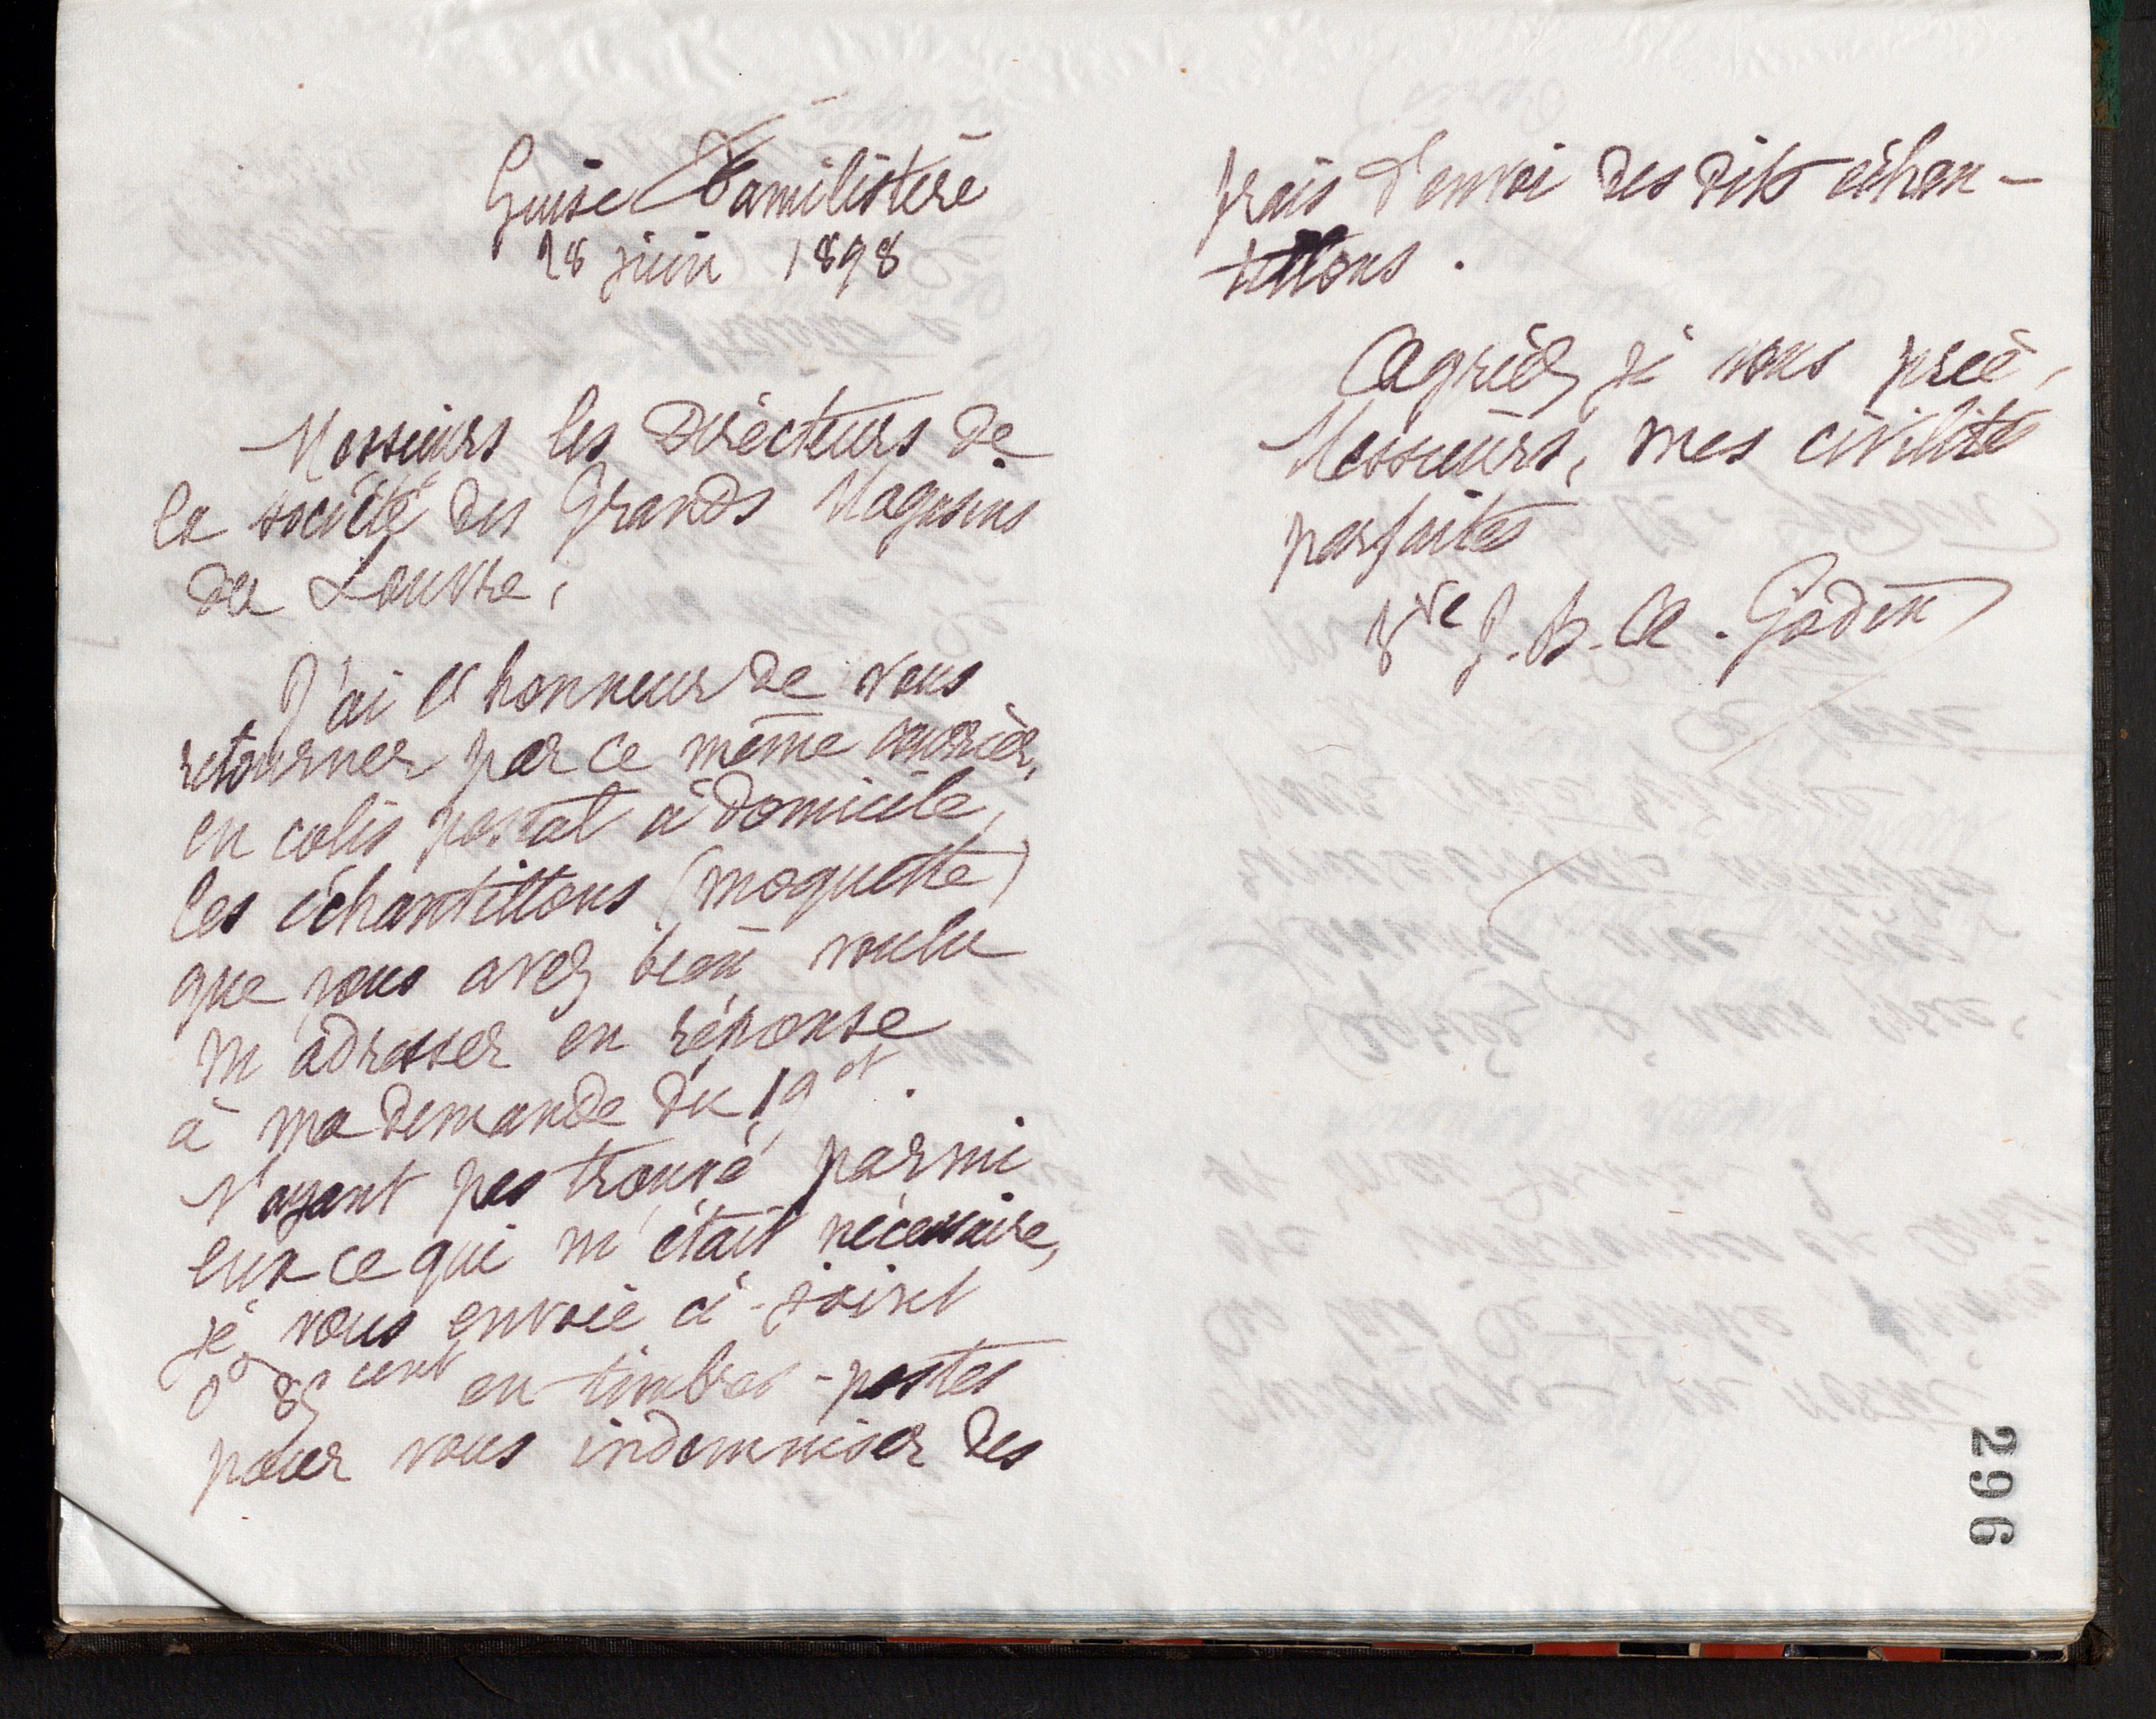 Guise Familistère
28 juin 1898
Messieurs les Directeurs de
la société des Grands Magasins
du Louvre,
J'ai l'honneur de vous
retourner par ce même courrier,
en colis postal à domicile,
les échantillons (moquette)
que vous avez bien voulu
m'adresser en réponse
à ma demande du 19 ct.
N'ayant pas trouvé parmi
eux ce qui m'était nécessaire,
je vous envoie ci-joint
0f 85 cent en timbres-postes
pour vous indemniser des
frais d'envoi des dits échan-
tillons.
Agréez je vous prie,
Messieurs, mes civilités
parfaites
Vve J.-B.-A. Godin
296